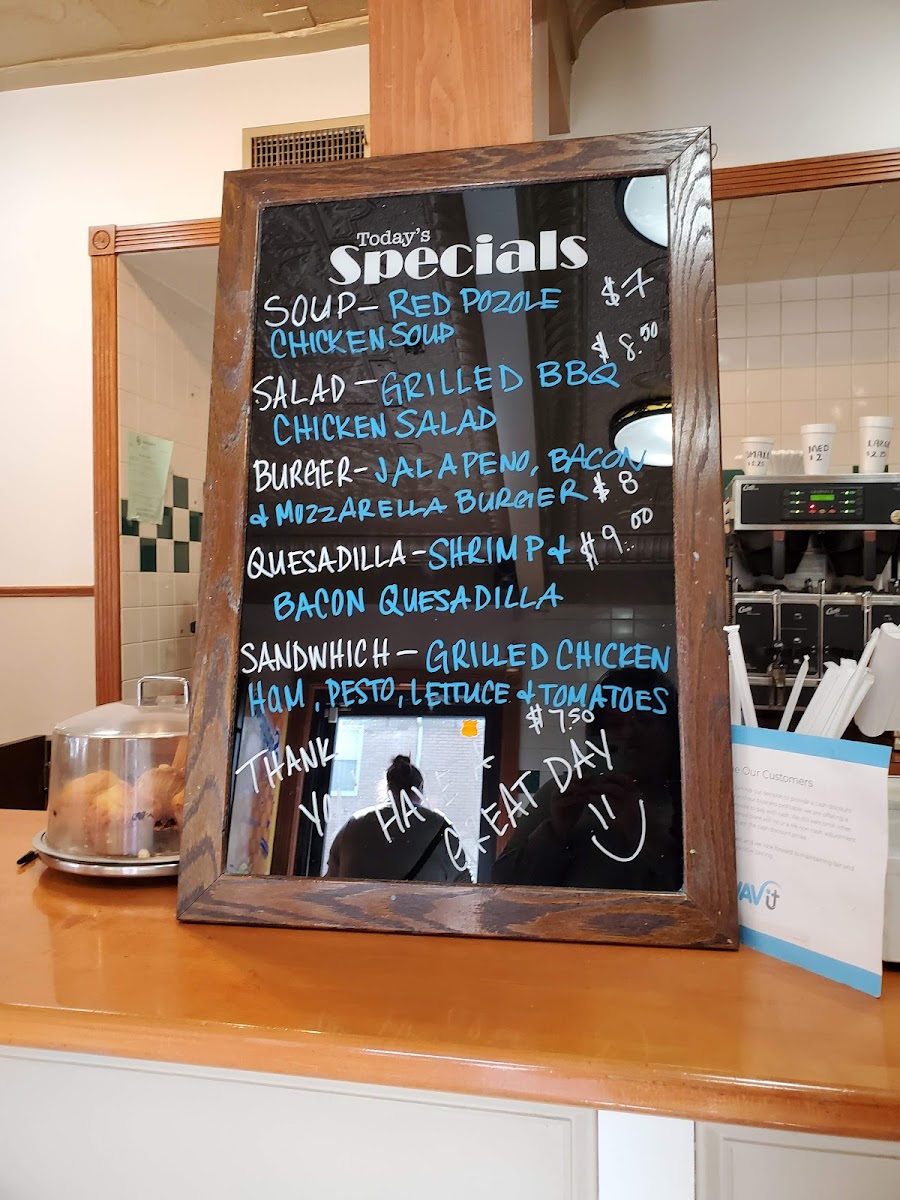 Today's
Specials
SOUP - RED POZOLE $7
CHICKEN SOUP
SALAD - GRILLED BBQ $8.50
CHICKEN SALAD
BURGER - JALAPENO, BACON
& MOZZARELLA BURGER $8
QUESADILLA - SHRIMP & $9.00
BACON QUESADILLA
SANDWHICH - GRILLED CHICKEN
HAM, PESTO, LETTUCE & TOMATOES
$7.50
THANK
YOU HAVE A
GREAT DAY
SMALL
MED
$2
LARGE
$2.25
Our Customers